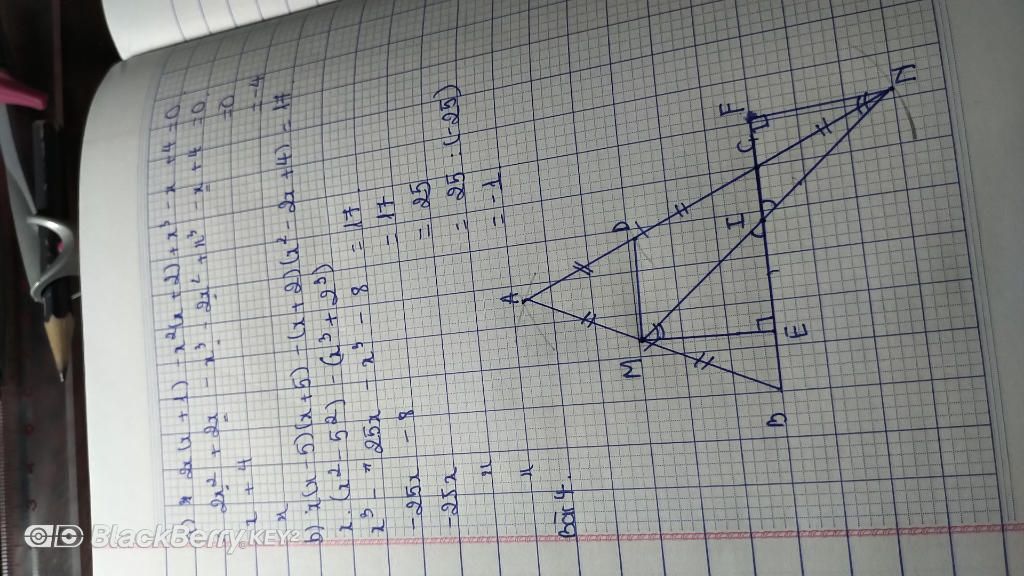 a) 2x(x + 1) - x²(x + 2) + x³ - x + 4 = 0
2x² + 2x - x³ - 2x² + x³ - x + 4 = 0
x + 4 = 0
x = -4
b) x(x - 5)(x + 5) - (x + 2)(x² - 2x + 4) = 17
x. (x² - 5²) - (x³ + 2³) = 17
x³ - 25x - x³ - 8 = 17
-25x - 8 = 17
-25x = 25
x = 25 : (-25)
x = -1
Bài 4.
A
M
D
B
E
I
C
F
N
BlackBerry KEY²